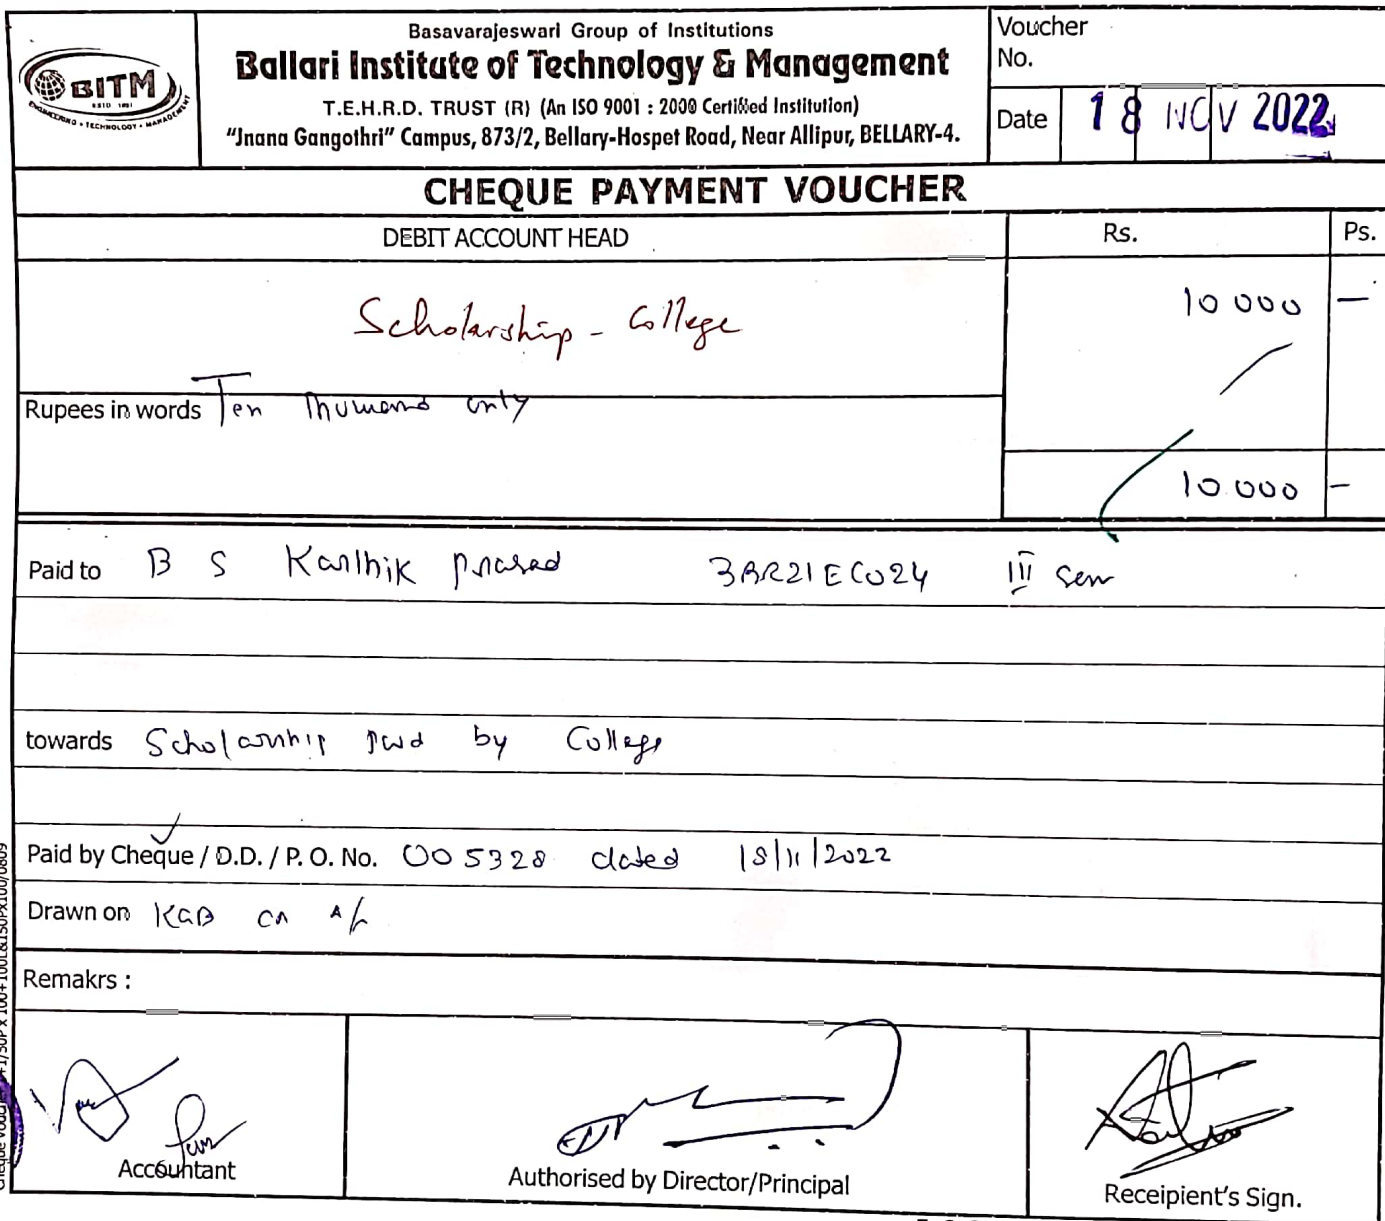 Basavarajeswari Group of Institutions
Ballari Institute of Technology & Management
T.E.H.R.D. TRUST (R) (An ISO 9001 : 2000 Certified Institution)
"Jnana Gangothri" Campus, 873/2, Bellary-Hospet Road, Near Allipur, BELLARY-4.
BITM
ESTD 1997
ENGINEERING • TECHNOLOGY • MANAGEMENT
Voucher
No.
Date 18 NOV 2022
CHEQUE PAYMENT VOUCHER
DEBIT ACCOUNT HEAD Rs. Ps.
Scholarship - College 10 000 —
Rupees in words Ten Thousand only
10 000 —
Paid to B S Karthik prasad 3BR21EC024 III sem
towards Scholarship paid by College
Paid by Cheque / D.D. / P. O. No. 005328 dated 18/11/2022
Drawn on KGB CA A/c
Remakrs :
Accountant
Authorised by Director/Principal
Receipient's Sign.